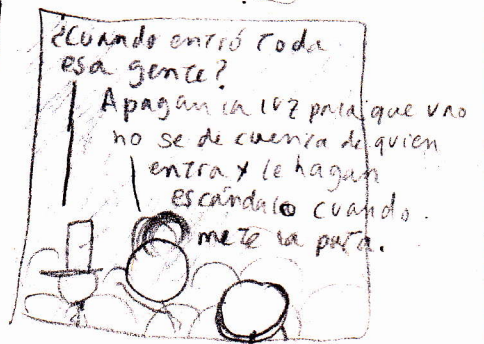 ¿Cuando entró toda
esa gente?
Apagan la luz para que uno
no se de cuenta de quien
entra y le hagan
escándalo cuando
mete la pata.